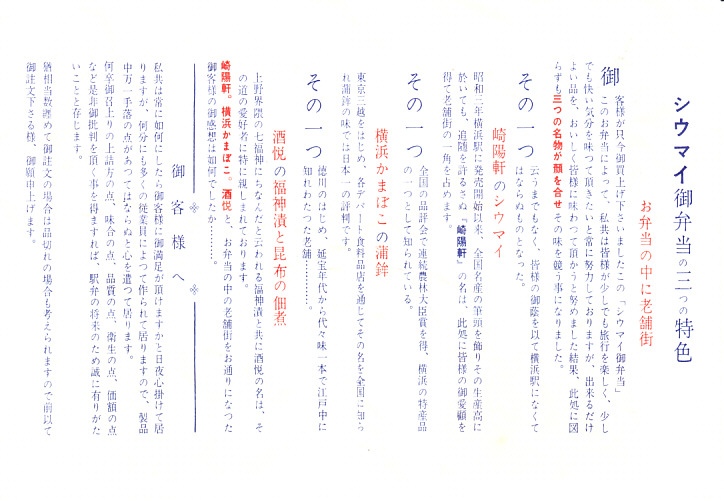 シウマイ御弁当の三つの特色
お弁当の中に老舗街
御客様が只今御買上げ下さいましたこの「シウマイ御弁当」
このお弁当によって、私共は皆様が少しでも旅行を楽しく、少し
でも快い気分を味つて頂きたいと常に努力しておりますが、出来るだけ
よい品を、おいしく皆様に味わつて頂かうと努めました結果、此処に図
らずも三つの名物が顔を合せその味を競う事になりました。
その一つ
崎陽軒のシウマイ
云うまでもなく、皆様の御蔭を以て横浜駅になくて
はならぬものとなった。
昭和三年横浜駅に発売開始以来、全国名産の筆頭を飾りその生産高に
於いても、追随を許るさぬ『崎陽軒』の名は、此処に皆様の御愛顧を
得て老舗街の一角を占めます。
その一つ
横浜かまぼこの蒲鉾
全国の品評会で連続農林大臣賞を得、横浜の特産品
の一つとして知られている。
東京三越をはじめ、各デパート食料品店を通じてその名を全国に知ら
れ蒲鉾の味では日本一の評判です。
その一つ
酒悦の福神漬と昆布の佃煮
徳川のはじめ、延宝年代から代々味一本で江戸中に
知れわたつた老舗………
上野界隈の七福神にちなんだと云われる福神漬と共に酒悦の名は、そ
の道の愛好者に特に親しまれております。
崎陽軒。横浜かまぼこ。酒悦と、お弁当の中の老舗街をお通りになつた
御客様の御感想は如何でしたか………。
御客様へ
私共は常に如何にしたら御客様に御満足が頂けますかと日夜心掛けて居
りますが、何分にも多くの従業員によつて作られて居りますので、製品
中万一手落の点があつてはならぬと心を遣つて居ります。
何卒御召上りの上詰方の点、味合の点、品質の点、衛生の点、価額の点
など是非御批判を頂く事を得ますれば、駅弁の将来のため誠に有りがた
いことと存じます。
猶相当数纒めて御註文の場合は品切れの場合も考えられますので前以て
御註文下さる様、御願申上げます。